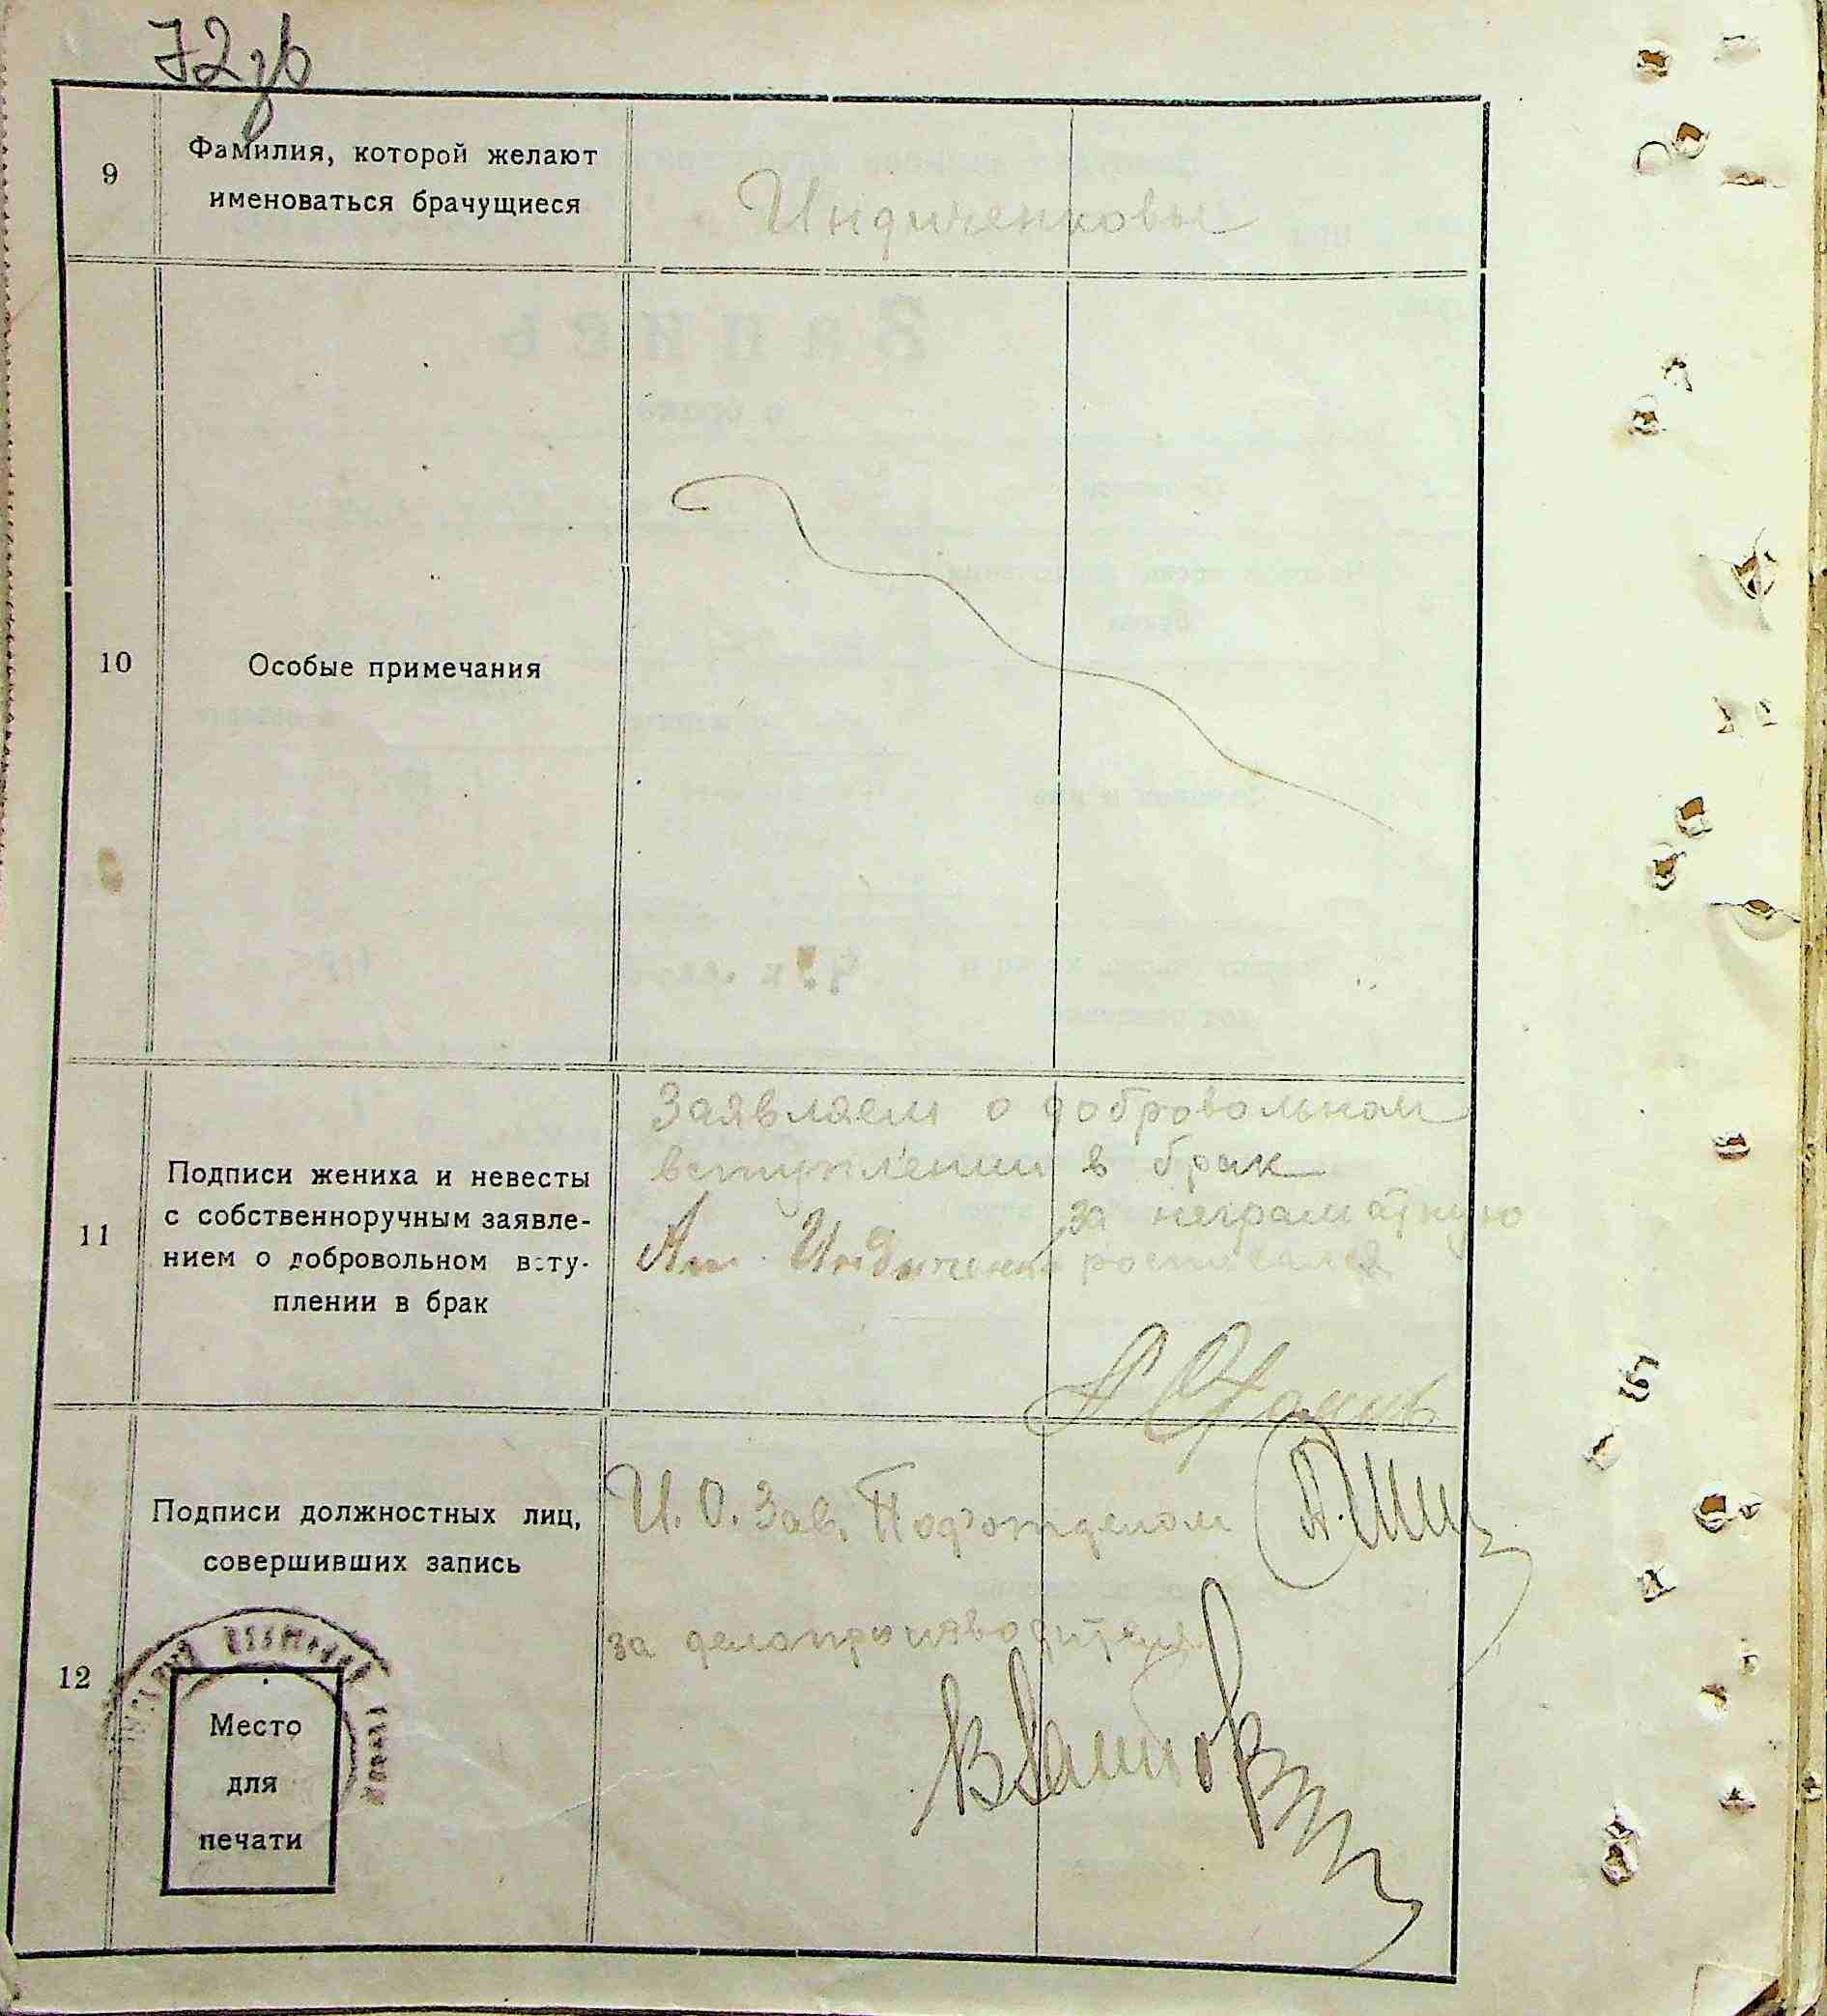 72 об
9
Фамилия, которой желают
именоваться брачущиеся
Индиченковы
10
Особые примечания
11
Подписи жениха и невесты
с собственноручным заявле-
нием о добровольном всту-
плении в брак
Заявляем о добровольном
вступлении в брак
Индиченко
за неграматную
росписался
12
Подписи должностных лиц,
совершивших запись
И. О. Зав. Подотделом
за делопроизводителя
Место
для
печати